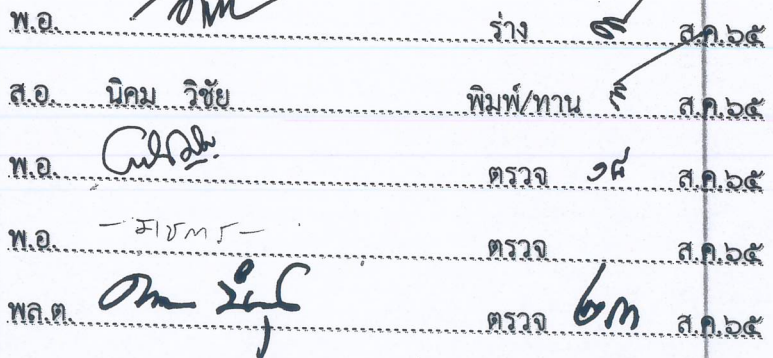 พ.อ. ร่าง ส.ค.๖๕
ส.อ. นิคม วิชัย พิมพ์/ทาน ส.ค.๖๕
พ.อ. ตรวจ ๑๘ ส.ค.๖๕
พ.อ. - ราชการ - ตรวจ ส.ค.๖๕
พล.ต. ตรวจ ๒๓ ส.ค.๖๕